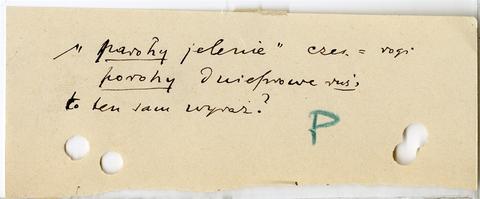 „parohy jelenie” czes. = rogi
porohy Dnieprowe rus.
to ten sam wyraz?
P